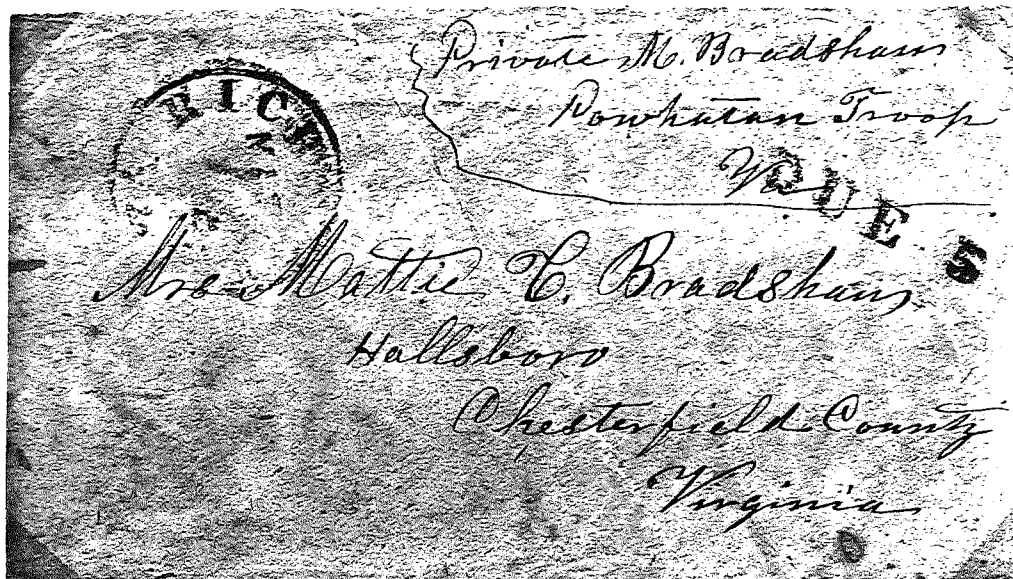 Private M. Bradshaw
Powhatan Troop
DUE 5
RICH
Mrs Mattie C. Bradshaw
Hallsboro
Chesterfield County
Virginia